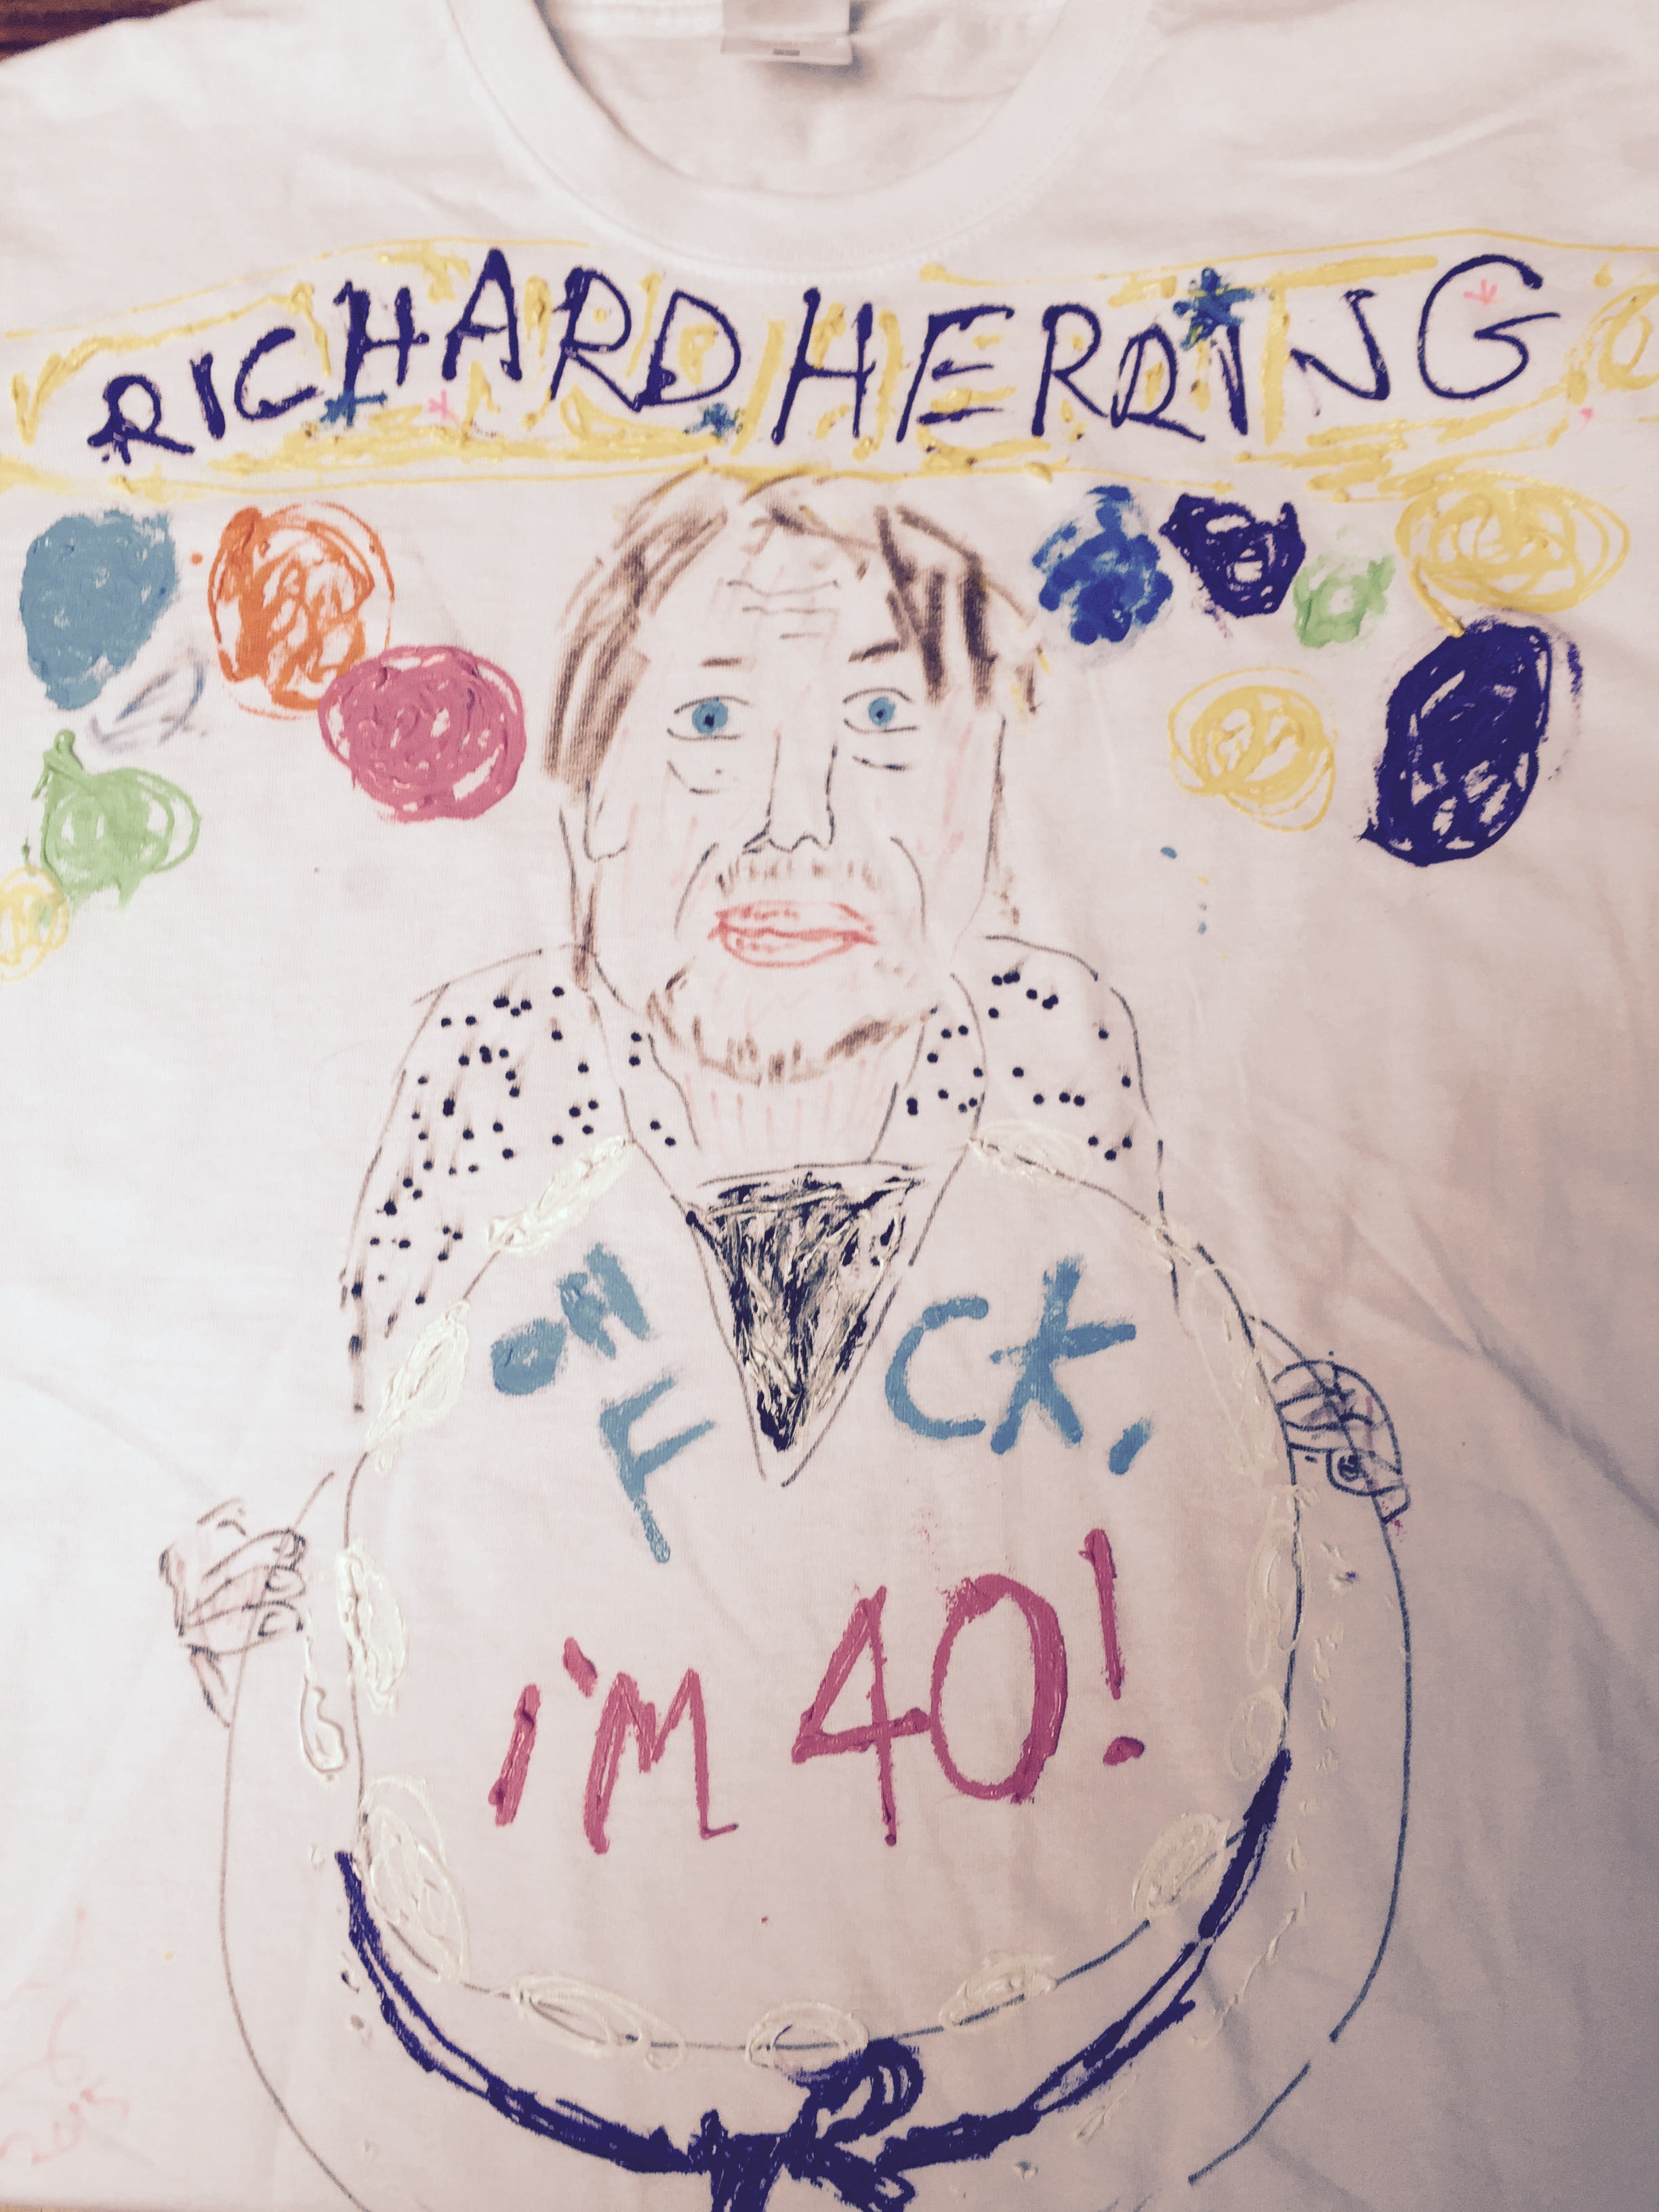 RICHARD HERRING
OH
F CK,
i'M 40!